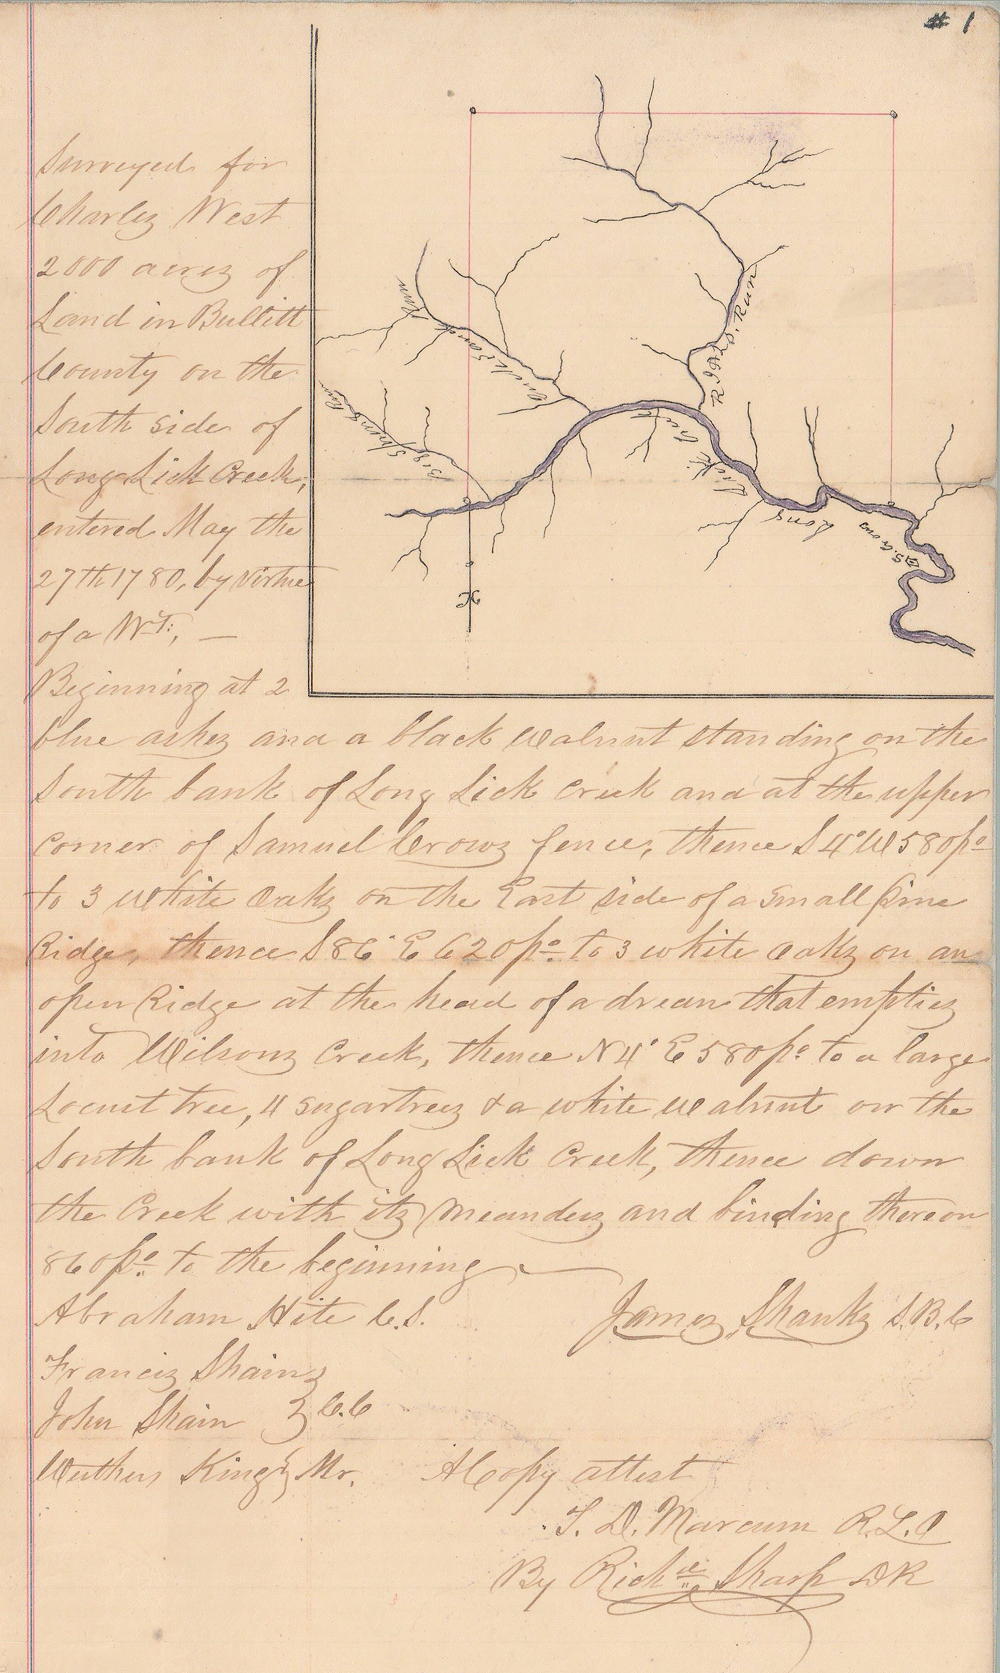 # 1
Surveyed for
Charles West
2000 acres of
Land in Bullitt
County on the
South side of
Long Lick Creek,
entered May the
27th 1780, by virtue
of a Wt:, —
Beginning at 2
blue ashes and a black Walnut standing on the
South bank of Long Lick Creek and at the upper
corner of Samuel Crows fence, thence S 4° W 580 po
to 3 White Oaks on the East side of a Small Pine
Ridge, thence S 86° E 620 po to 3 white Oaks on an
open Ridge at the head of a drean that empties
into Wilsons Creek, thence N 4° E 580 po to a large
Locust tree, 4 Sugartrees & a white Walnut on the
South bank of Long Lick Creek, thence down
the Creek with its Meanders and binding thereon
860 po to the beginning
Abraham Hite C.S.
James Shanks S.B.C
Francis Shain
John Shain } C.C
King } Mr.
A Copy attest
T. D. Marcum R.L.O
By Richd Sharp DR
Run
Quick Sand
Big Spring
Robs. Run
Long Lick Creek
S. Crows